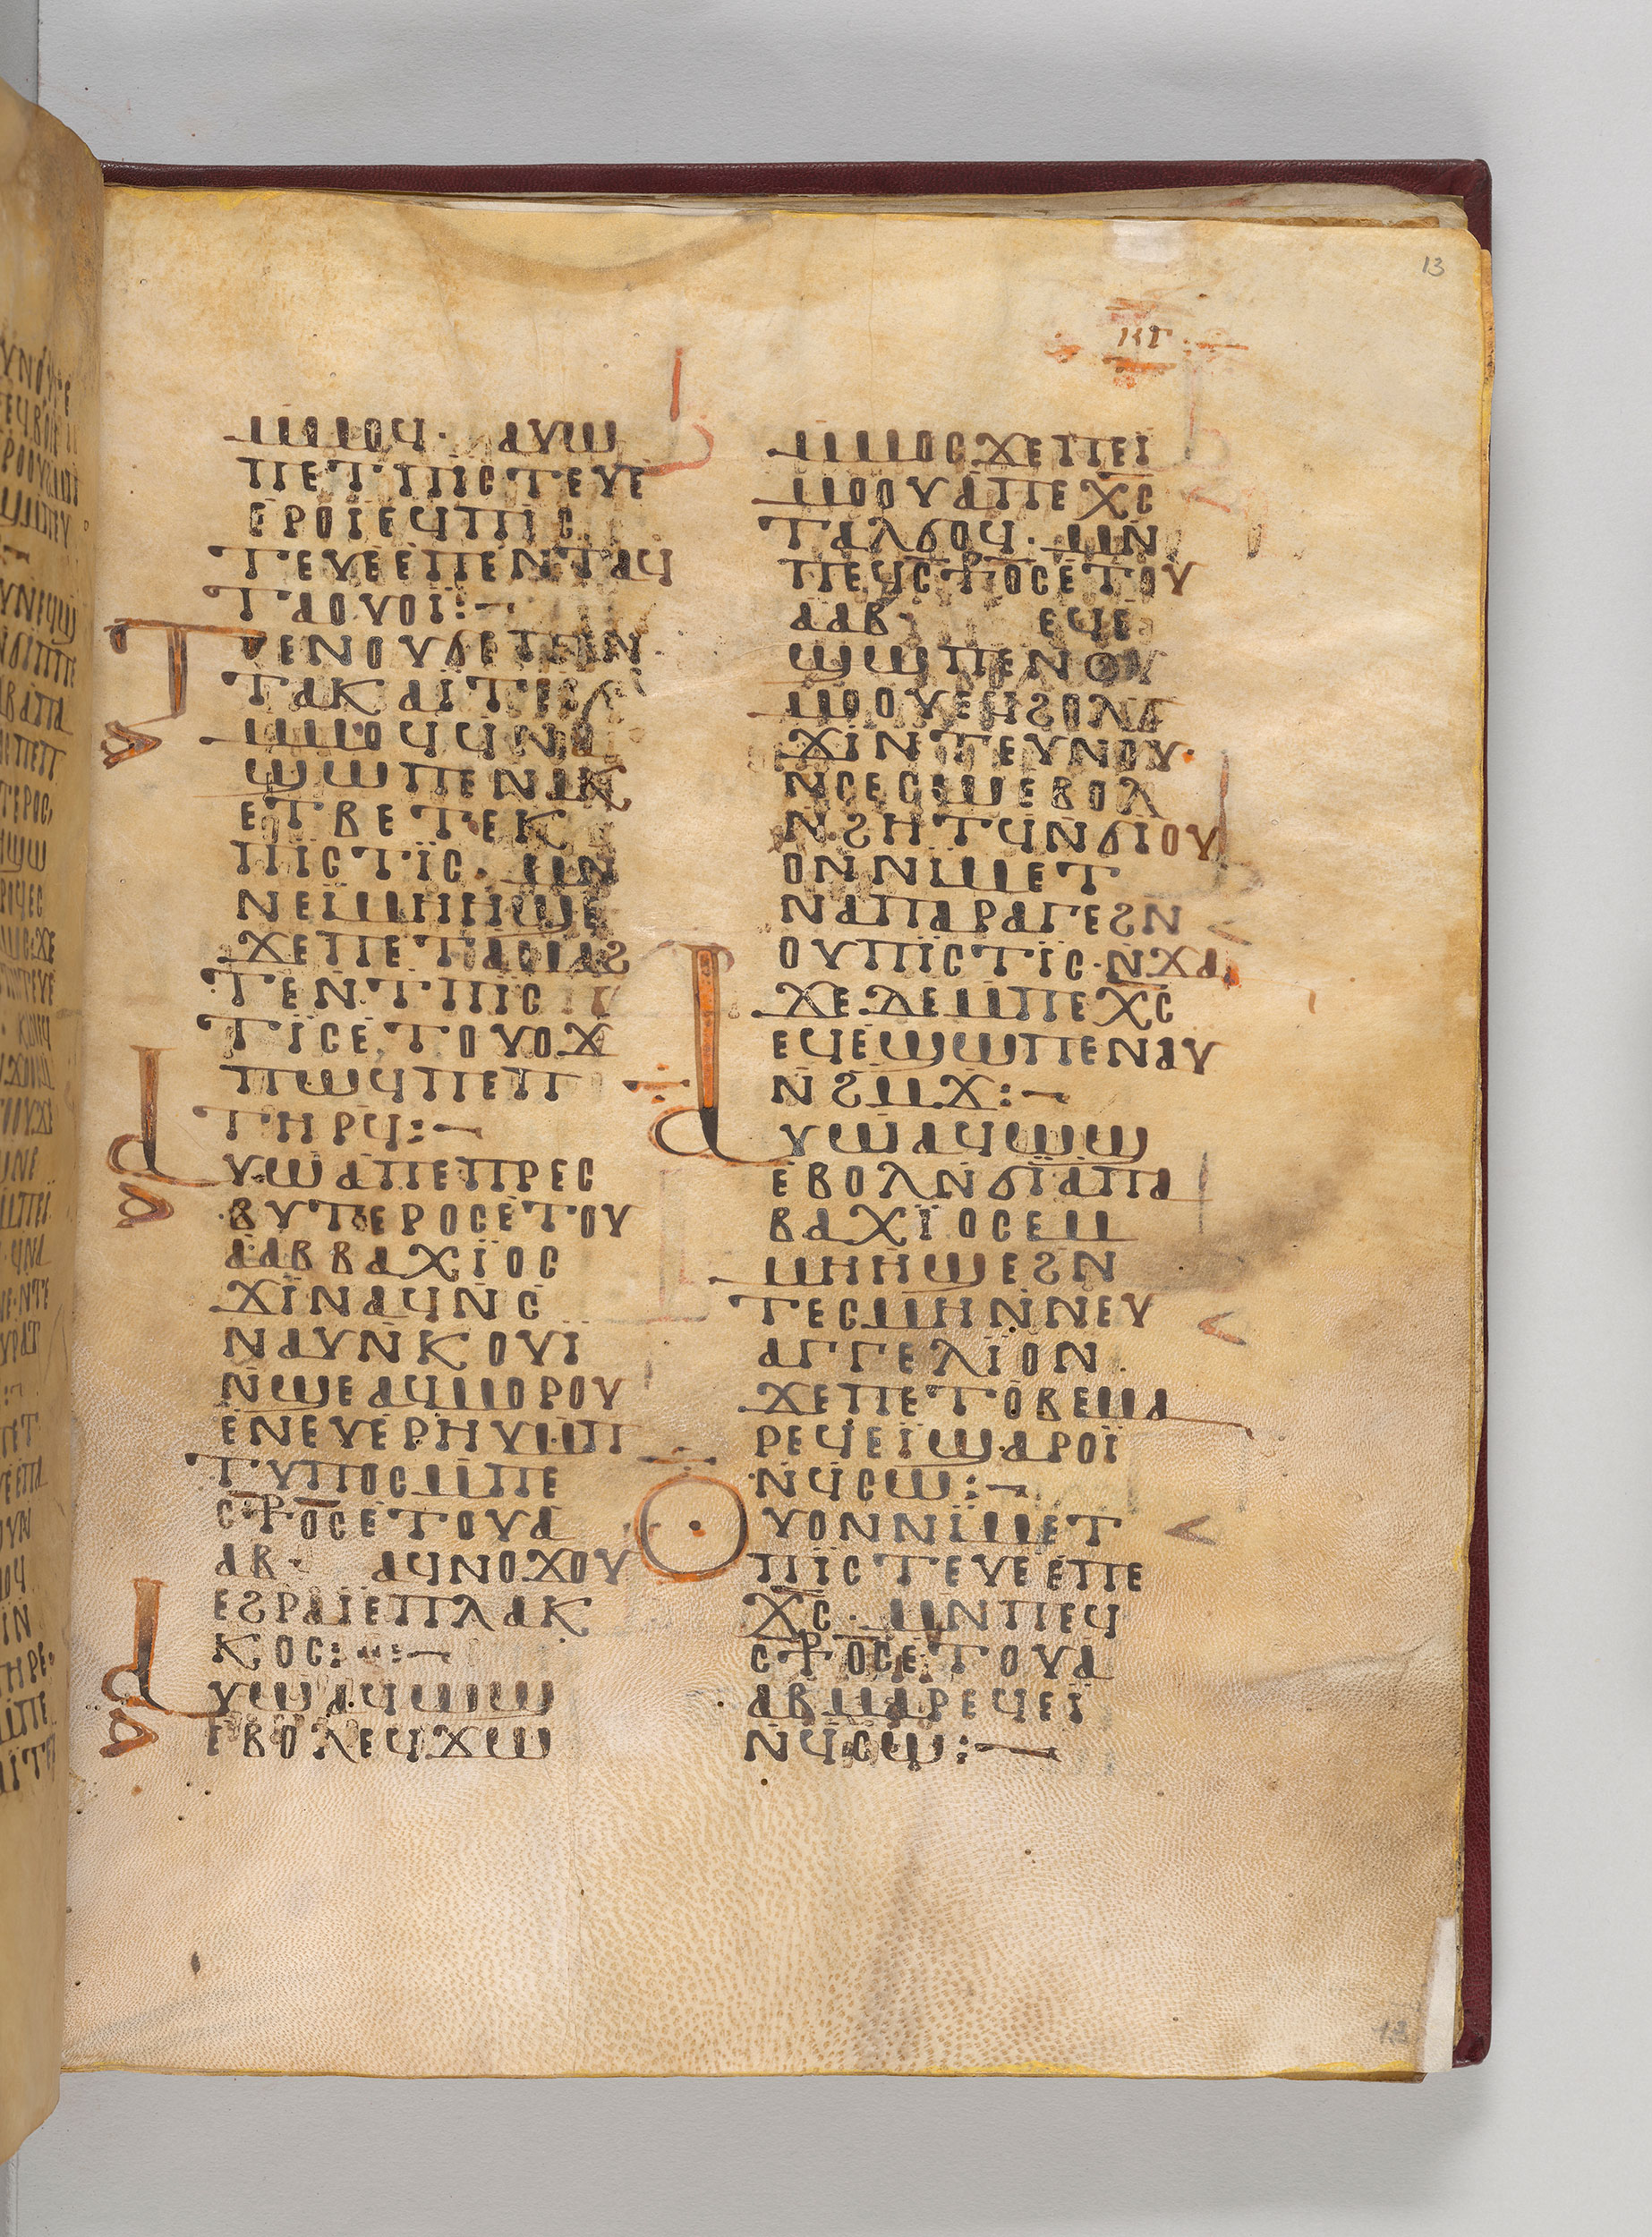 13
ⲕⲅ
ⲙⲙⲟϥ· ⲁⲩⲱ
ⲡⲉⲧⲡⲓⲥⲧⲉⲩⲉ
ⲉⲣⲟⲓⲉϥⲡⲓⲥ
ⲧⲉⲩⲉⲉⲡⲉⲛⲧⲁϥ
ⲧⲁⲟⲩⲟⲓ:—
ⲧⲉⲛⲟⲩϭⲉ
ϣⲱⲡⲉⲛⲁⲕ
ⲉⲧⲃⲉⲧⲉⲕ
ⲡⲓⲥⲧⲓⲥ· ⲙⲛ
ⲛⲉⲓⲙⲏⲏϣⲉ
ϫⲉⲡⲉⲧⲁϭⲓⲁϩ
ⲧⲉⲛⲧⲡⲓⲥ
ⲧⲓⲥⲉⲧⲟⲩⲟϫ
ⲡⲱϥⲡⲉⲡ
ⲧⲏⲣϥ:—
ⲁⲩⲱⲁⲡⲉⲡⲣⲉⲥ
ⲃⲩⲧⲉⲣⲟⲥⲉⲧⲟⲩ
ⲁⲁⲃⲃⲁⲭⲓⲟⲥ
ϫⲓⲛⲁϥⲛⲥ
ⲛⲁⲩⲛⲕⲟⲩⲓ
ⲛϣⲉⲁϥⲙⲟⲣⲟⲩ
ⲉⲛⲉⲩⲉⲣⲏⲩⲙⲡ
ⲧⲩⲡⲟⲥⲙⲡⲉ
ⲥ⳨ⲟⲥⲉⲧⲟⲩⲁ
ⲁⲃ· ⲁϥⲛⲟϫⲟⲩ
ⲉϩⲣⲁⲓⲉⲡⲗⲁⲕ
ⲕⲟⲥ:—
ⲁⲩⲱⲁϥⲱϣ
ⲉⲃⲟⲗⲉϥϫⲱ
ⲙⲙⲟⲥϫⲉⲡⲉⲓ
ⲙⲟⲟⲩⲁⲡⲉⲭⲥ
ⲧⲁⲗϭⲟϥ· ⲙⲛ
ⲡⲉϥⲥ⳨ⲟⲥⲉⲧⲟⲩ
ⲁⲁⲃ· ⲉϥⲉ
ϣⲱⲡⲉⲛⲟⲩ
ⲙⲟⲟⲩⲉϥϩⲟⲗϭ
ϫⲓⲛⲧⲉⲩⲛⲟⲩ·
ⲛⲥⲉⲥⲙⲉⲃⲟⲗ
ⲛϩⲏⲧϥⲛϭⲓⲟⲩ
ⲟⲛⲛⲓⲙⲉⲧ
ⲛⲁⲡⲁⲣⲁⲅⲉϩⲛ
ⲟⲩⲡⲓⲥⲧⲓⲥ·ⲛϫⲁ
ϫⲉⲇⲉⲙⲡⲉⲭⲥ
ⲉϥⲉϣⲱⲡⲉⲛⲁⲩ
ⲛϩⲙϫ:—
ⲁⲩⲱⲁϥⲱϣ
ⲉⲃⲟⲗⲛϭⲓⲁⲡⲁ
ⲃⲁⲭⲓⲟⲥⲉⲡ
ⲙⲏⲏϣⲉϩⲛ
ⲧⲉⲥⲙⲏⲛⲛⲉⲩ
ⲁⲅⲅⲉⲗⲓⲟⲛ·
ϫⲉⲡⲉⲧⲟⲃⲉⲙⲁ
ⲣⲉϥⲉⲓϣⲁⲣⲟⲓ
ⲛϥⲥⲱ:—
ⲟⲩⲟⲛⲛⲓⲙⲉⲧ
ⲡⲓⲥⲧⲉⲩⲉⲉⲡⲉ
ⲭⲥ· ⲙⲛⲡⲉϥ
ⲥ⳨ⲟⲥⲉⲧⲟⲩⲁ
ⲁⲃⲙⲁⲣⲉϥⲉⲓ
ⲛϥⲥⲱ:—